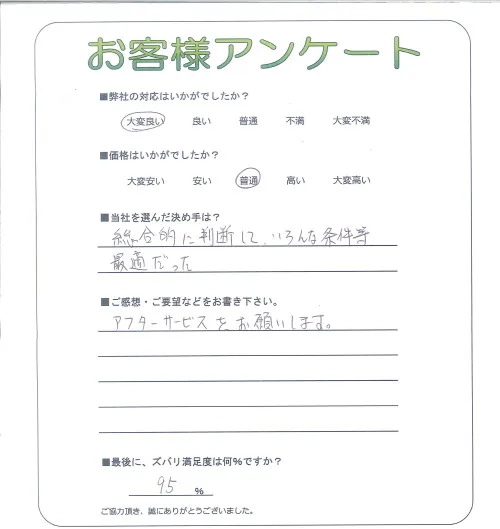 お客様アンケート
■弊社の対応はいかがでしたか？
大変良い 良い 普通 不満 大変不満
■価格はいかがでしたか？
大変安い 安い 普通 高い 大変高い
■当社を選んだ決め手は？
総合的に判断して、いろんな条件等
最適だった
■ご感想・ご要望などをお書き下さい。
アフターサービスをお願いします。
■最後に、ズバリ満足度は何％ですか？
95 ％
ご協力頂き、誠にありがとうございました。